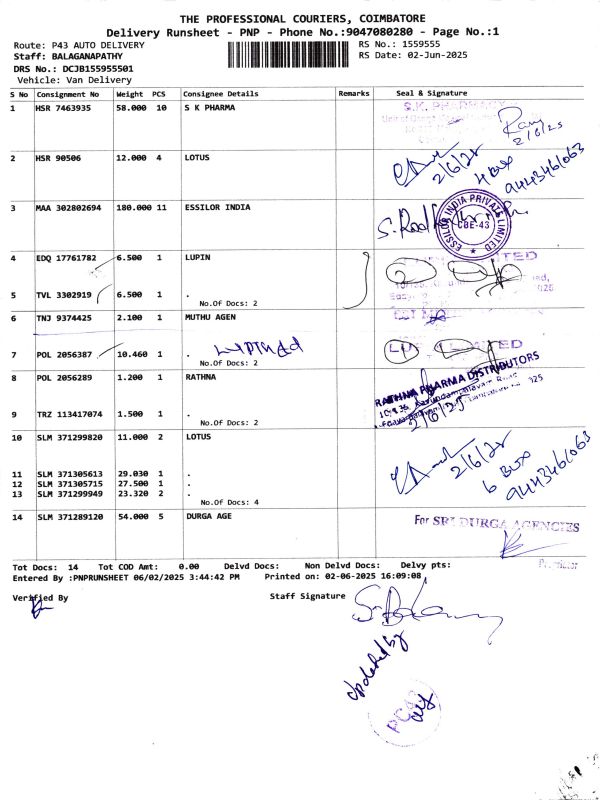 THE PROFESSIONAL COURIERS, COIMBATORE
Delivery Runsheet - PNP - Phone No.:9047080280 - Page No.:1
Route: P43 AUTO DELIVERY
RS No.: 1559555
Staff: BALAGANAPATHY
RS Date: 02-Jun-2025
DRS No.: DCJB155955501
Vehicle: Van Delivery
S No Consignment No Weight PCS Consignee Details Remarks Seal & Signature
1 HSR 7463935 58.000 10 S K PHARMA
S.K. PHARMACY
2/6/25
2 HSR 90506 12.000 4 LOTUS
2/6/25
4 Box
9443461063
3 MAA 302802694 180.000 11 ESSILOR INDIA
ESSILOR INDIA PRIVATE LIMITED
CBE-43
4 EDQ 17761782 6.500 1 LUPIN
5 TVL 3302919 6.500 1 .
No.Of Docs: 2
6 TNJ 9374425 2.100 1 MUTHU AGEN
7 POL 2056387 10.460 1 .
No.Of Docs: 2
8 POL 2056289 1.200 1 RATHNA
RATHNA PHARMA DISTRIBUTORS
2/6/25
9 TRZ 113417074 1.500 1 .
No.Of Docs: 2
10 SLM 371299820 11.000 2 LOTUS
2/6/25
6 Box
9443461063
11 SLM 371305613 29.030 1 .
12 SLM 371305715 27.500 1 .
13 SLM 371299949 23.320 2 .
No.Of Docs: 4
14 SLM 371289120 54.000 5 DURGA AGE
For SRI DURGA AGENCIES
Proprietor
Tot Docs: 14 Tot COD Amt: 0.00 Delvd Docs: Non Delvd Docs: Delvy pts:
Entered By :PNPRUNSHEET 06/02/2025 3:44:42 PM Printed on: 02-06-2025 16:09:08
Verified By
Staff Signature
Updated by
PC43